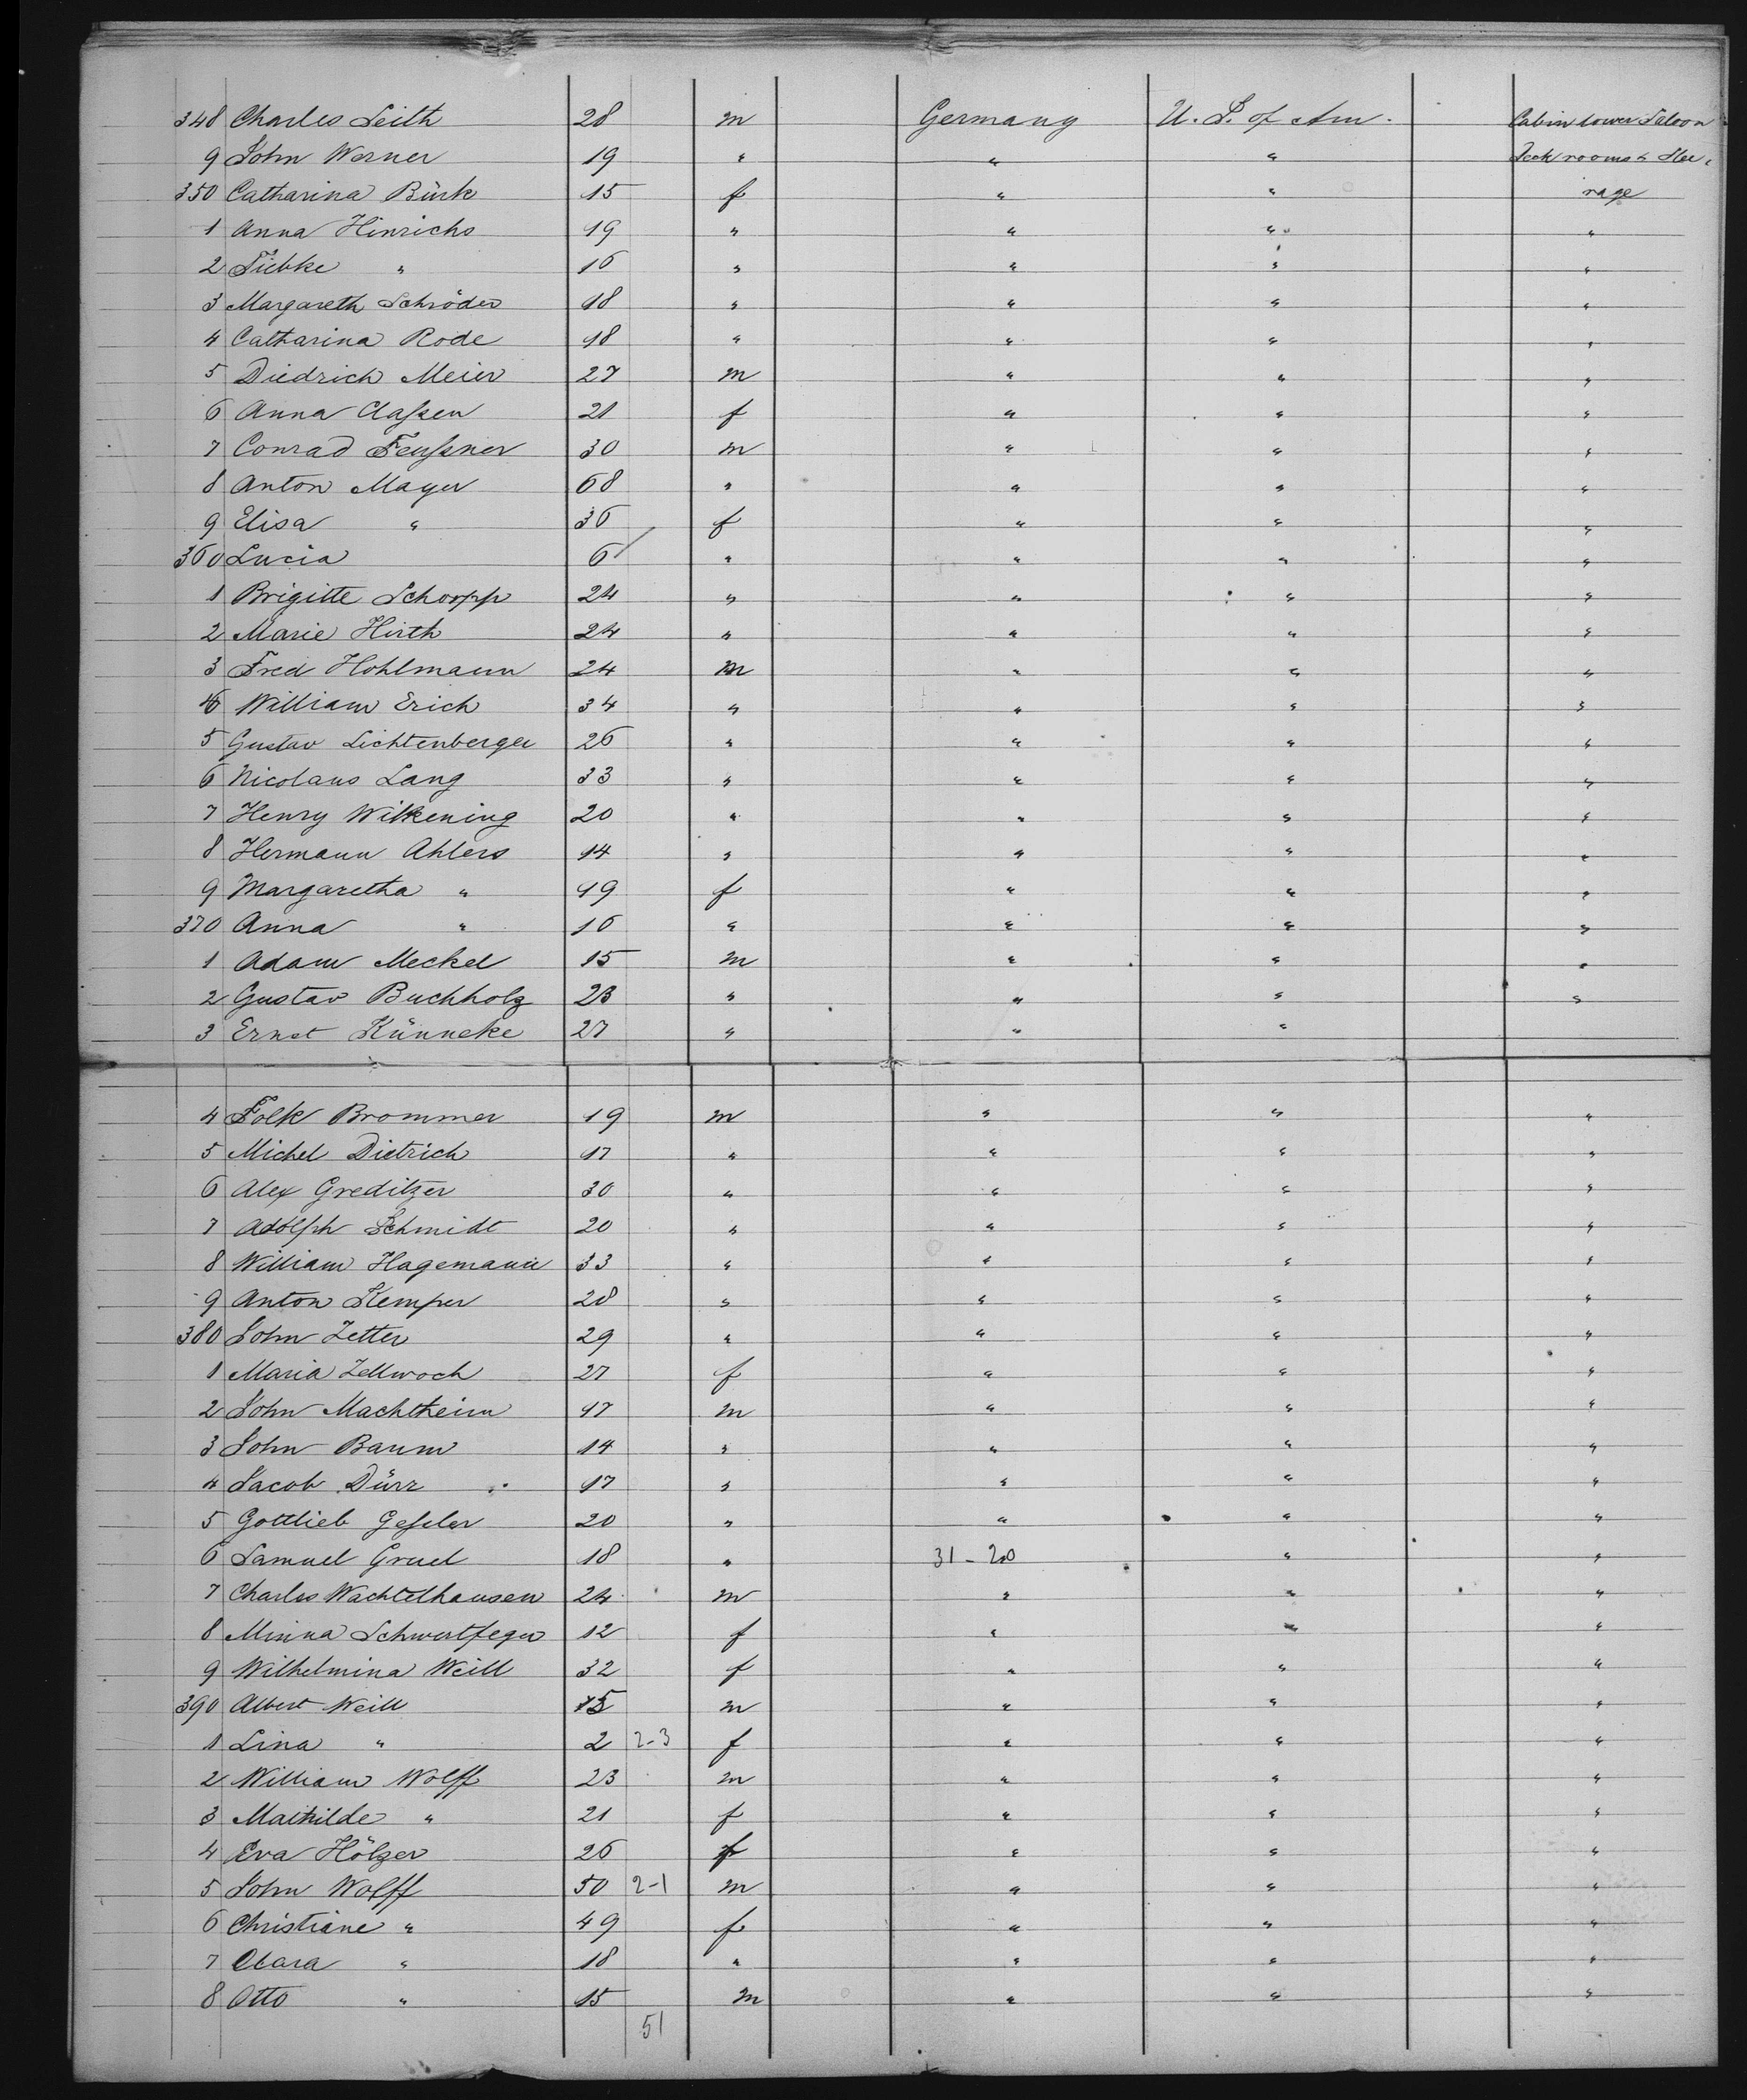 348 Charles Leith 28 m Germany U. S. of Am. Cabin lower Saloon
9 John Werner 19 " " " Deck rooms & Stee-
350 Catharina Bürk 15 f " " rage
1 Anna Hinrichs 19 " " " "
2 Tiebke " 16 " " " "
3 Margareth Schröder 18 " " " "
4 Catharina Rode 18 " " " "
5 Diedrich Meier 27 m " " "
6 Anna Claßen 21 f " " "
7 Conrad Feußner 30 m " " "
8 Anton Mayer 68 " " " "
9 Elisa " 36 f " " "
360 Lucia 6 " " " "
1 Brigitte Schorpp 24 " " " "
2 Marie Hirth 24 " " " "
3 Fred Hohlmann 24 m " " "
4 William Erich 34 " " " "
5 Gustav Lichtenberger 26 " " " "
6 Nicolaus Lang 33 " " " "
7 Henry Wilkening 20 " " " "
8 Hermann Ahlers 14 " " " "
9 Margaretha " 19 f " " "
370 Anna " 16 " " " "
1 Adam Meckel 15 m " " "
2 Gustav Buchholz 23 " " " "
3 Ernst Künneke 27 " " "
4 Folk Brommer 19 m " " "
5 Michel Dietrich 17 " " " "
6 Alex Greditzer 30 " " " "
7 Adolph Schmidt 20 " " " "
8 William Hagemann 33 " " " "
9 Anton Kemper 28 " " " "
380 John Zetter 29 " " " "
1 Maria Zellwoch 27 f " " "
2 John Machtheim 17 m " " "
3 John Baum 14 " " " "
4 Jacob Dürr 17 " " " "
5 Gottlieb Geßler 20 " " " "
6 Samuel Gruel 18 " 31-20 " "
7 Charles Wachtelhausen 24 m " " "
8 Minna Schwertfeger 12 f " " "
9 Wilhelmina Weill 32 f " " "
390 Albert Weill 15 m " " "
1 Lina " 2 2-3 f " " "
2 William Wolff 23 m " " "
3 Mathilde " 21 f " " "
4 Eva Hölzer 26 f " " "
5 John Wolff 50 2-1 m " " "
6 Christiane " 49 f " " "
7 Clara " 18 " " " "
8 Otto " 15 m " " "
51